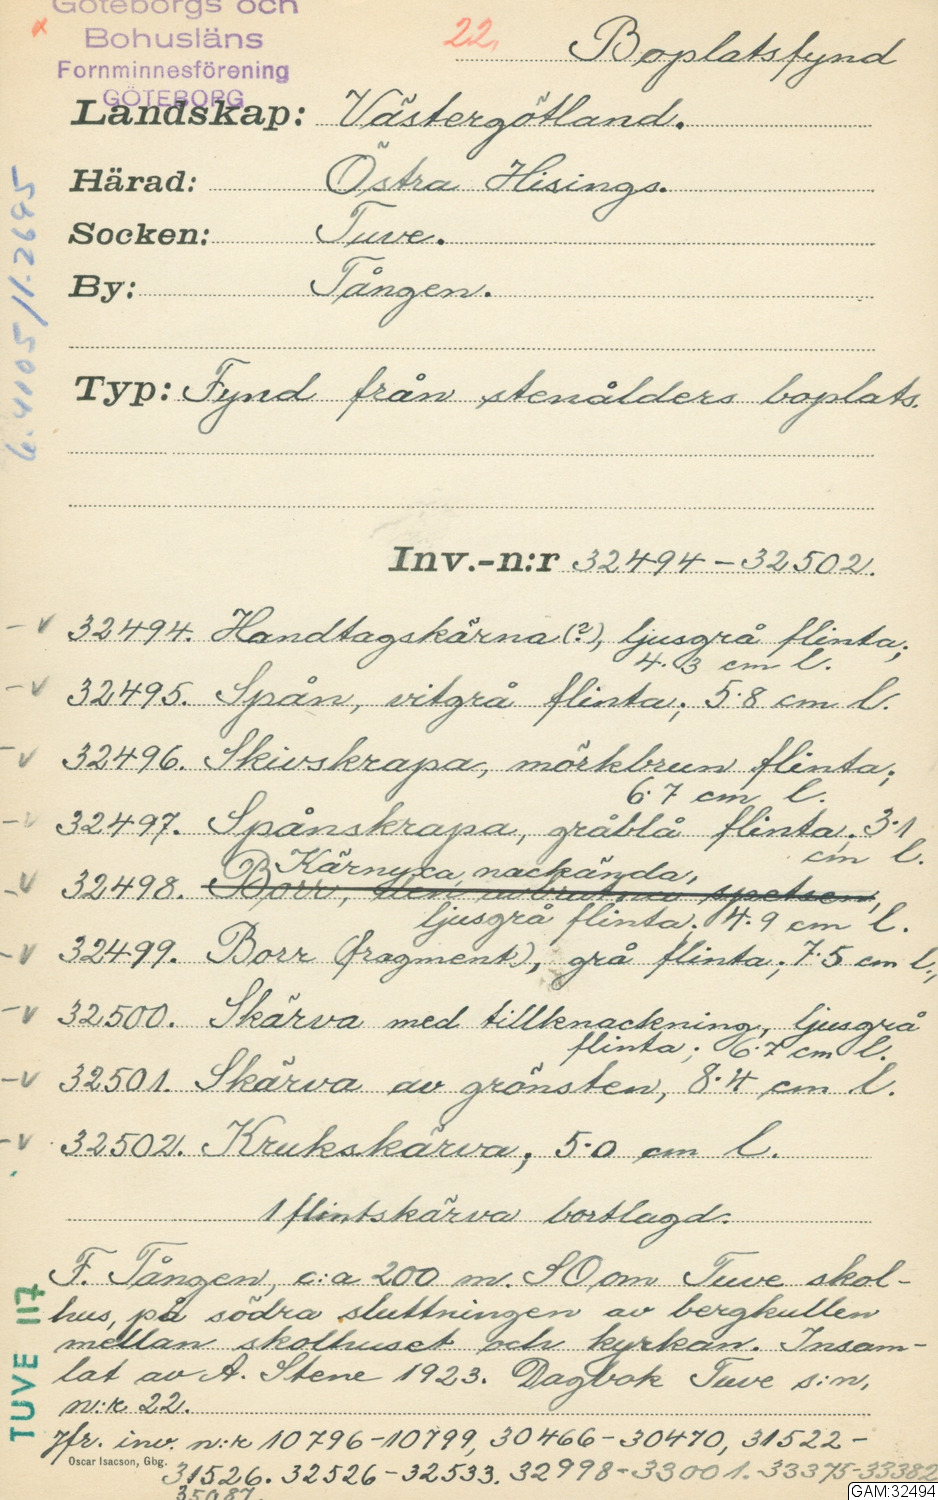 Göteborgs och
Bohusläns
Fornminnesförening
GÖTEBORG
22.
Boplatsfynd
Landskap: Västergötland.
Härad: Östra Hisings.
Socken: Tuve.
By: Tången.
Typ: Fynd från stenålders boplats.
Inv.-n:r 32494-32502.
32494. Handtagskärna (?), ljusgrå flinta;
4.3 cm l.
32495. Spån, vitgrå flinta; 5.8 cm l.
32496. Skivskrapa, mörkbrun flinta;
6.7 cm l.
32497. Spånskrapa, gråblå flinta; 3.1
cm l.
Kärnyxa, nackända,
32498. Borr, den avbrutna spetsen,
ljusgrå flinta; 4.9 cm l.
32499. Borr (fragment), grå flinta; 7.5 cm l.,
32500. Skärva med tillknackning, ljusgrå
flinta; 6.7 cm l.
32501. Skärva av grönsten, 8.4 cm l.
32502. Krukskärva, 5.0 cm l.
1 flintskärva bortlagd.
F. Tången, c:a 200 m. SO om Tuve skol-
hus, på södra sluttningen av bergkullen
mellan skolhuset och kyrkan. Insam-
lat av A. Stene 1923. Dagbok Tuve s:n,
n:r 22.
Jfr. inv. n:r 10796-10799, 30466-30470, 31522-
Oscar Isacson, Gbg.
31526. 32526-32533. 32998-33001. 33375-33382
35087.
6.4105/11.2695
TUVE 117
GAM:32494